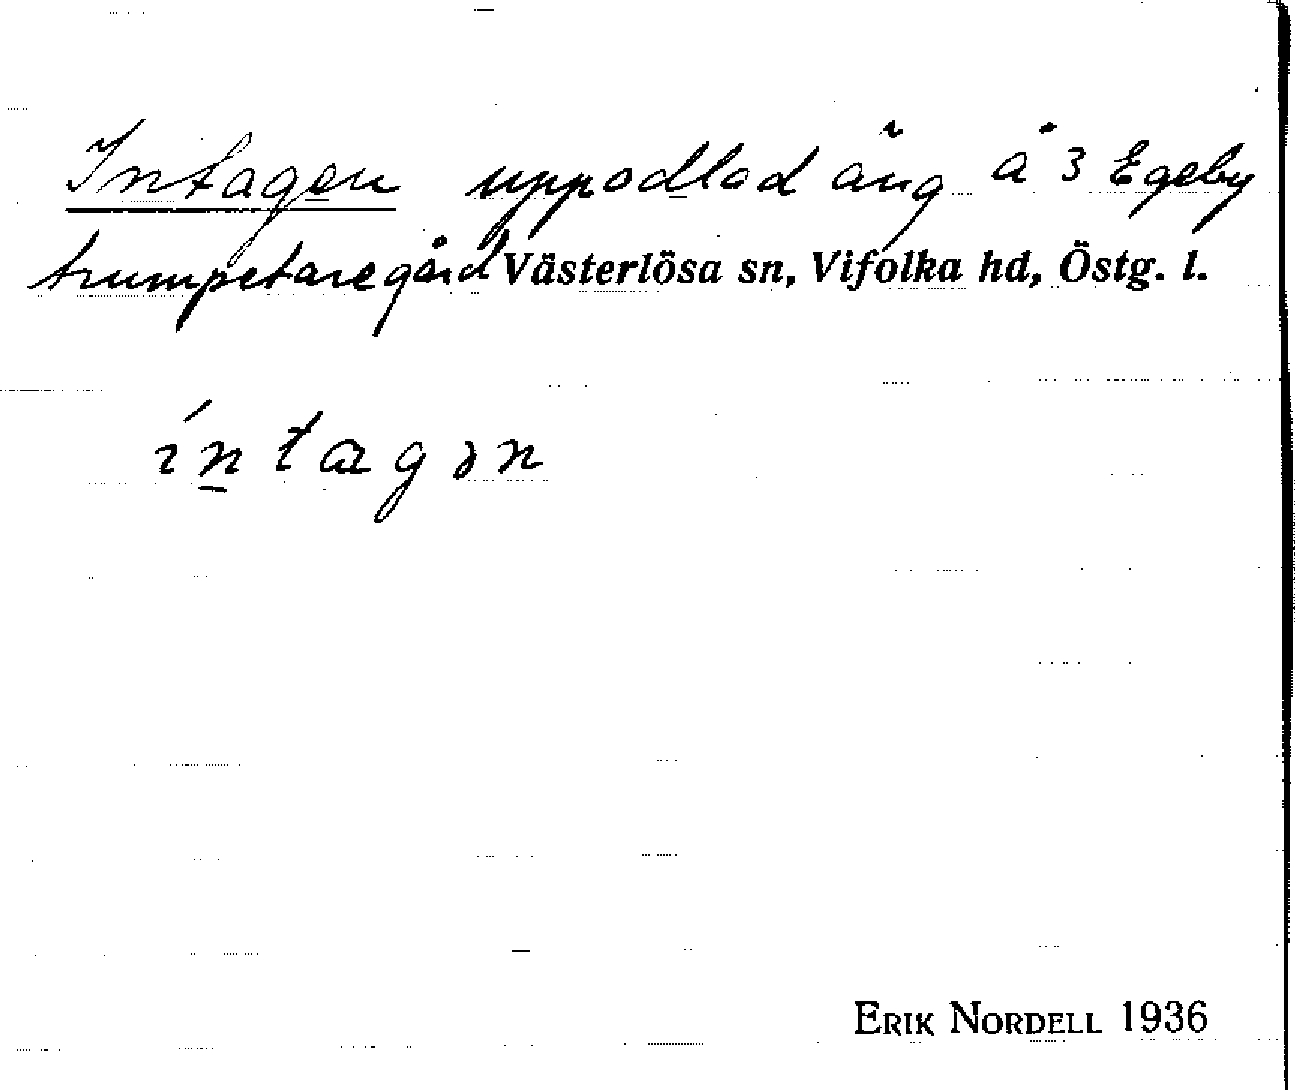 Intagen uppodlad äng å 3 Egeby
trumpetaregård Västerlösa sn, Vifolka hd, Östg. l.
íntagən
ERIK NORDELL 1936